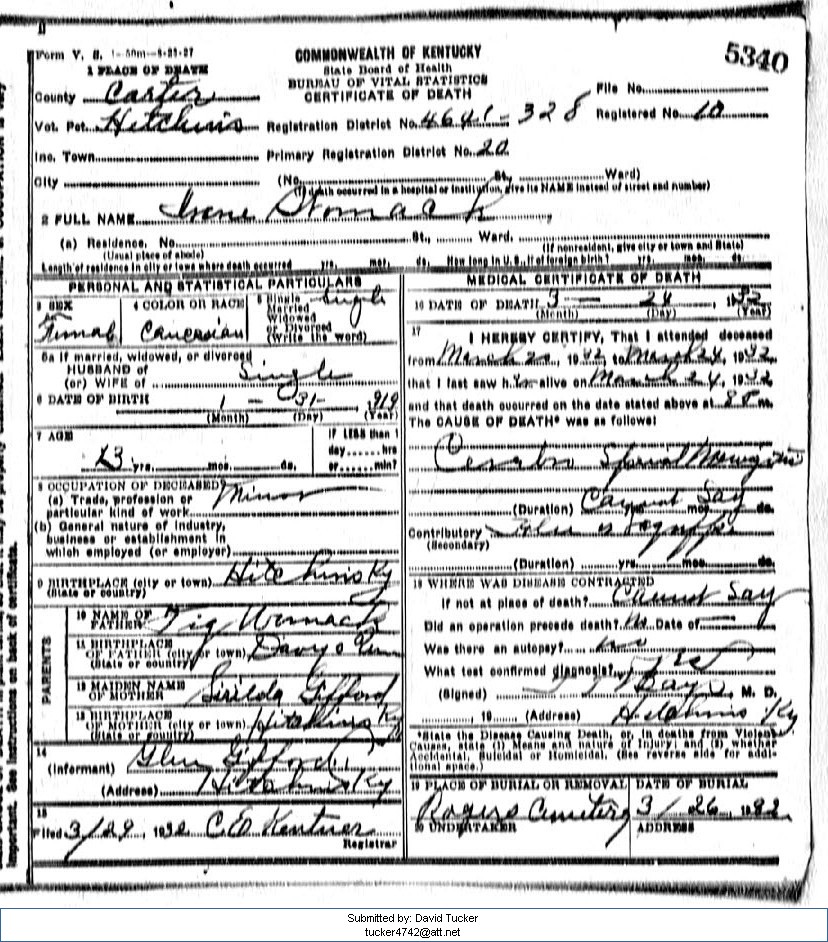 Form V. S. 1-50m-8-21-27
COMMONWEALTH OF KENTUCKY
State Board of Health
BUREAU OF VITAL STATISTICS
CERTIFICATE OF DEATH
5340
1 PLACE OF DEATH
County Carter
File No.
Vot. Pct. Hitchins Registration District No. 4641-328 Registered No. 10
Inc. Town Primary Registration District No. 20
City (No. St., Ward)
(If death occurred in a hospital or institution, give its NAME instead of street and number)
2 FULL NAME Irene Womack
(a) Residence. No. St., Ward.
(Usual place of abode) (If nonresident, give city or town and State)
Length of residence in city or town where death occurred yrs. mos. ds. How long in U. S., if of foreign birth? yrs. mos. ds.
PERSONAL AND STATISTICAL PARTICULARS
3 SEX
Femal
4 COLOR OR RACE
Caucasian
5 Single
Married
Widowed
or Divorced
(Write the word)
Single
5a If married, widowed, or divorced
HUSBAND of
(or) WIFE of Single
6 DATE OF BIRTH
1 - 31 - 1919
(Month) (Day) (Year)
7 AGE
13 yrs. mos. ds.
IF LESS than 1
day hrs
or min?
8 OCCUPATION OF DECEASED
(a) Trade, profession or
particular kind of work Minor
(b) General nature of industry,
business or establishment in
which employed (or employer)
9 BIRTHPLACE (city or town) Hitchins Ky
(State or country)
PARENTS
10 NAME OF
FATHER Tig Womack
11 BIRTHPLACE
OF FATHER (city or town)
(State or country)
12 MAIDEN NAME
OF MOTHER Gifford
13 BIRTHPLACE
OF MOTHER (city or town) Hitchins Ky
(State or country)
14
(Informant) Glen Gifford
(Address) Hitchins Ky
15
Filed 3/29, 1932 Registrar
MEDICAL CERTIFICATE OF DEATH
16 DATE OF DEATH 3 - 24, 1932
(Month) (Day) (Year)
17
I HEREBY CERTIFY, That I attended deceased
from March 20, 1932, to March 24, 1932,
that I last saw h er alive on March 24, 1932,
and that death occurred on the date stated above at 8 m.
The CAUSE OF DEATH* was as follows:
Cerebro Spinal
(Duration) Cannot Say yrs. mos. ds.
Contributory
(Secondary)
(Duration) yrs. mos. ds.
18 WHERE WAS DISEASE CONTRACTED
If not at place of death? Cannot Say
Did an operation precede death? No Date of
Was there an autopsy? no
What test confirmed diagnosis?
(Signed) M. D.
, 19 (Address) Hitchins Ky
*State the Disease Causing Death, or, in deaths from Violent
Causes, state (1) Means and nature of Injury; and (2) whether
Accidental, Suicidal or Homicidal. (See reverse side for addi-
tional space.)
19 PLACE OF BURIAL OR REMOVAL
Rogers Cemetery
DATE OF BURIAL
3/26, 1932
20 UNDERTAKER
ADDRESS
Important. See instructions on back of certificate.
Submitted by: David Tucker
tucker4742@att.net